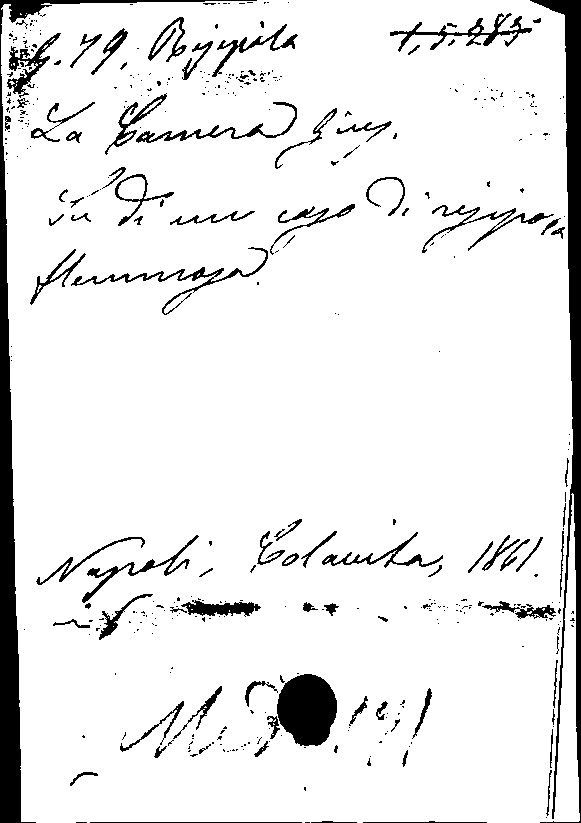 G. 79. Risipola 1,5.283
La Camera Gius.
Su di un caso di risipola
flemmosa.
Napoli, Colavita, 1861.
in 8
Med. 191